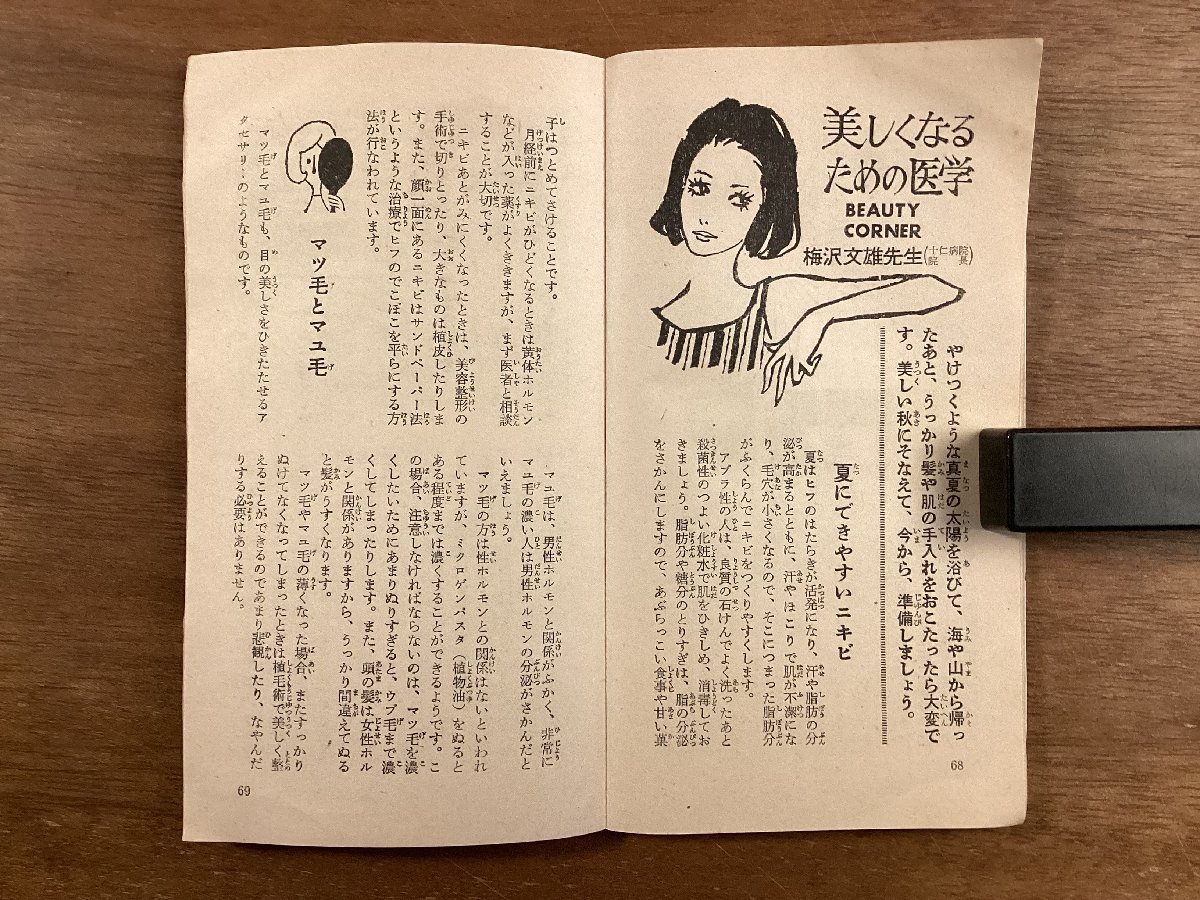 美しくなる
ための医学
BEAUTY
CORNER
梅沢文雄先生(十仁病院院長)
やけつくような真夏の太陽を浴びて、海や山から帰っ
たあと、うっかり髪や肌の手入れをおこたったら大変で
す。美しい秋にそなえて、今から、準備しましょう。
夏にできやすいニキビ
夏はヒフのはたらきが活発になり、汗や脂肪の分
泌が高まるとともに、汗やほこりで肌が不潔にな
り、毛穴が小さくなるので、そこにつまった脂肪分
がふくらんでニキビをつくりやすくします。
アブラ性の人は、良質の石けんでよく洗ったあと
殺菌性のつよい化粧水で肌をひきしめ、消毒してお
きましょう。脂肪分や糖分のとりすぎは、脂の分泌
をさかんにしますので、あぶらっこい食事や甘い菓
68
子はつとめてさけることです。
月経前にニキビがひどくなるときは黄体ホルモン
などが入った薬がよくききますが、まず医者と相談
することが大切です。
ニキビあとがみにくくなったときは、美容整形の
手術で切りとったり、大きなものは植皮したりしま
す。また、顔一面にあるニキビはサンドペーパー法
というような治療でヒフのでこぼこを平らにする方
法が行なわれています。
マツ毛とマユ毛
マツ毛とマユ毛も、目の美しさをひきたたせるア
クセサリーのようなものです。
マユ毛は、男性ホルモンと関係がふかく、非常に
マユ毛の濃い人は男性ホルモンの分泌がさかんだと
いえましょう。
マツ毛の方は性ホルモンとの関係はないといわれ
ていますが、ミクロゲンパスタ(植物油)をぬると
ある程度までは濃くすることができるようです。こ
の場合、注意しなければならないのは、マツ毛を濃
くしたいためにあまりぬりすぎると、ウブ毛まで濃
くしてしまったりします。また、頭の髪は女性ホル
モンと関係がありますから、うっかり間違えてぬる
と髪がうすくなります。
マツ毛やマユ毛の薄くなった場合、またすっかり
ぬけてなくなってしまったときは植毛術で美しく整
えることができるのであまり悲観したり、なやんだ
りする必要はありません。
69